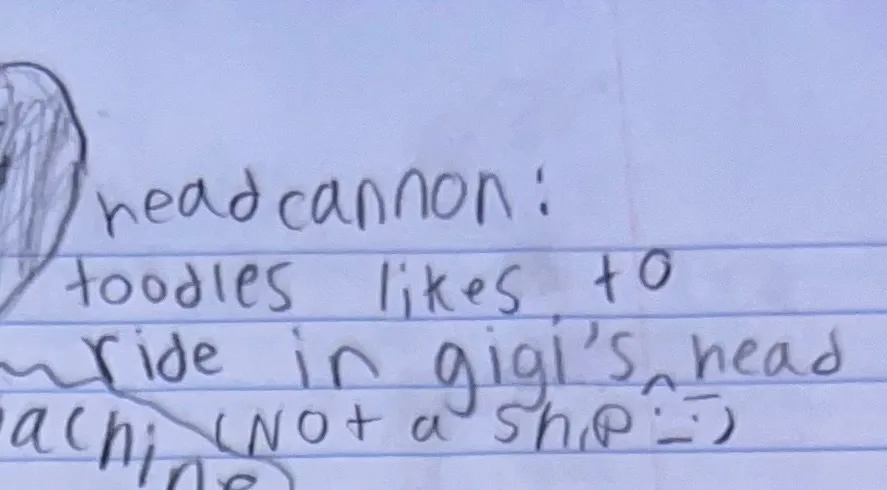 headcannon:
toodles likes to
ride in gigi's ^ head
achi (Not a ship :-)
ne)